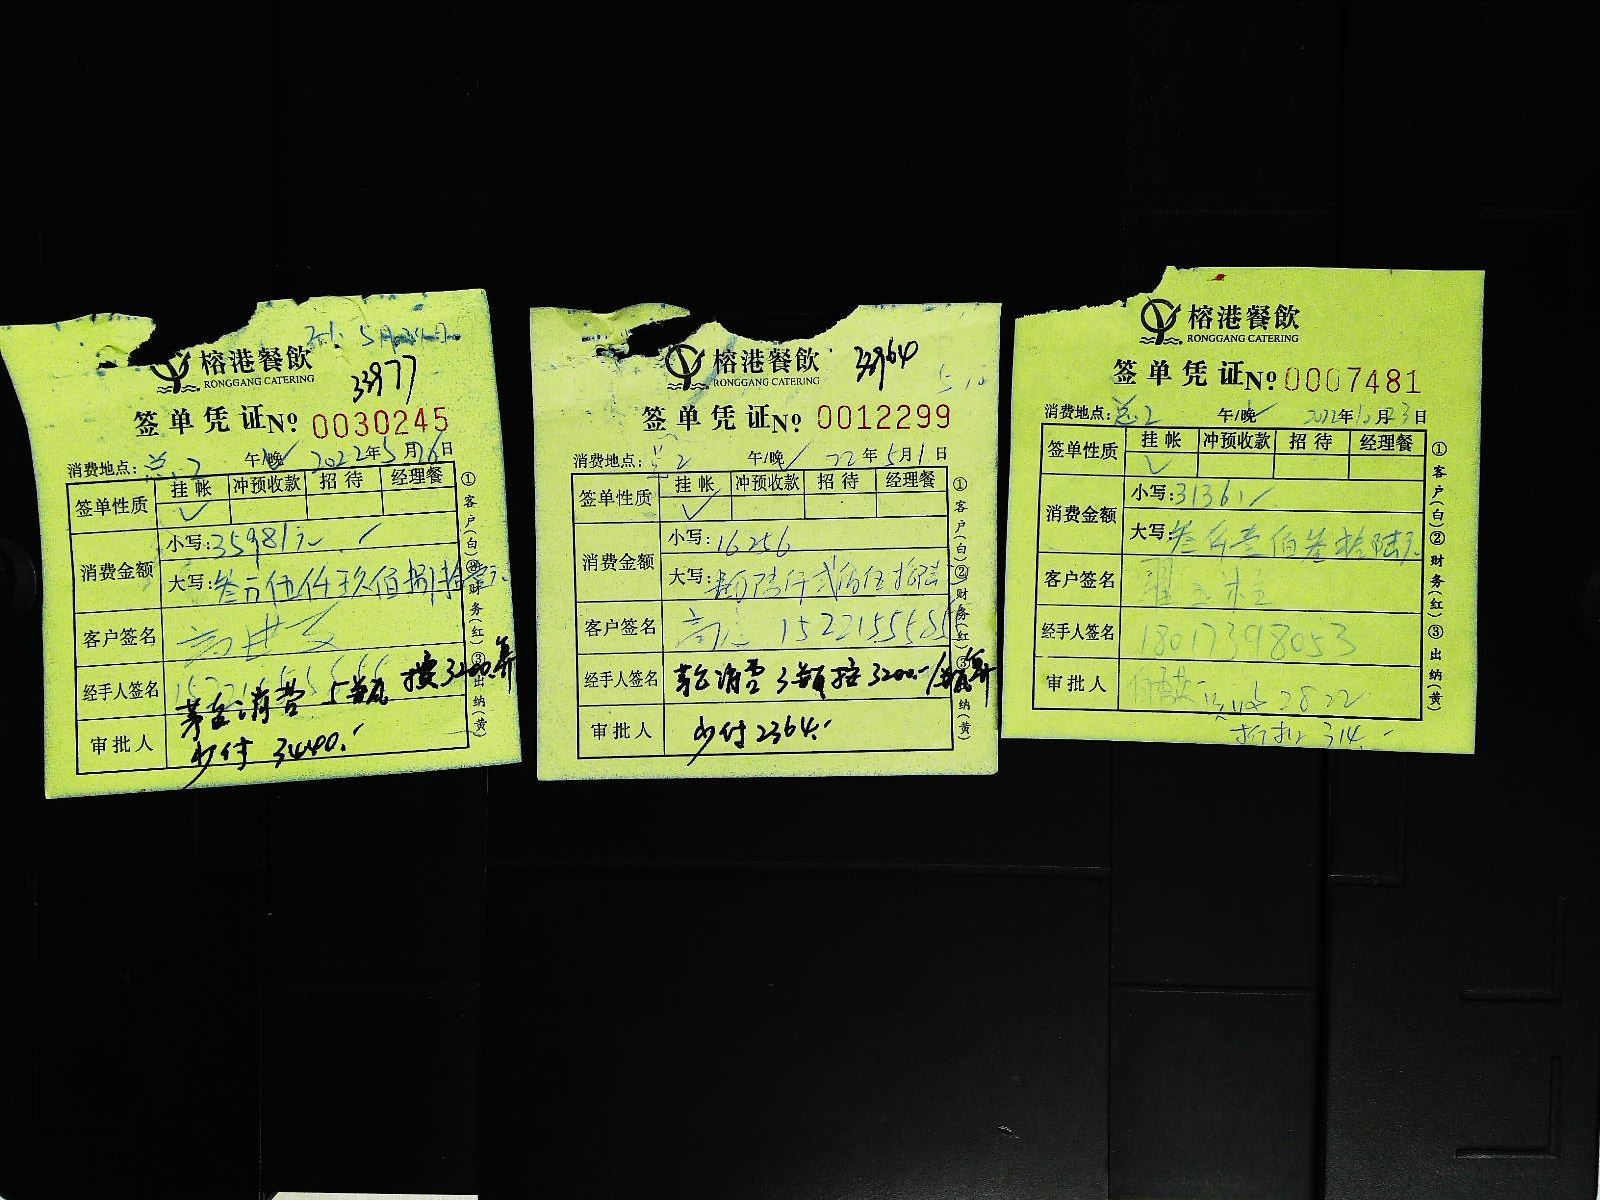 33977
榕港餐飲
RONGGANG CATERING
签单凭证 No 0030245
消费地点: 总.2 午/晚 2022年5月26日
签单性质 挂帐 冲预收款 招待 经理餐
✓
消费金额 小写: 35981元
大写: 叁万伍仟玖佰捌拾壹元
客户签名
经手人签名
茅台消费 5瓶 按3200.算
审批人
少付 3440.-
①客户(白)②财务(红)③出纳(黄)
33964
榕港餐飲
RONGGANG CATERING
签单凭证 No 0012299
消费地点: 总2 午/晚✓ 22年5月1日
签单性质 挂帐 冲预收款 招待 经理餐
✓
消费金额 小写: 16256
大写: 壹万陆仟贰佰伍拾陆
客户签名
经手人签名 茅台消费 3瓶 按3200.-/瓶算
审批人 少付2364.-
①客户(白)②财务(红)③出纳(黄)
榕港餐飲
RONGGANG CATERING
签单凭证 No 0007481
消费地点: 总.2 午/晚 2022年10月23日
签单性质 挂帐 冲预收款 招待 经理餐
✓
消费金额 小写: 3136.-
大写: 叁仟壹佰叁拾陆元
客户签名
经手人签名 18017398053
审批人 2822
折扣 314.-
①客户(白)②财务(红)③出纳(黄)